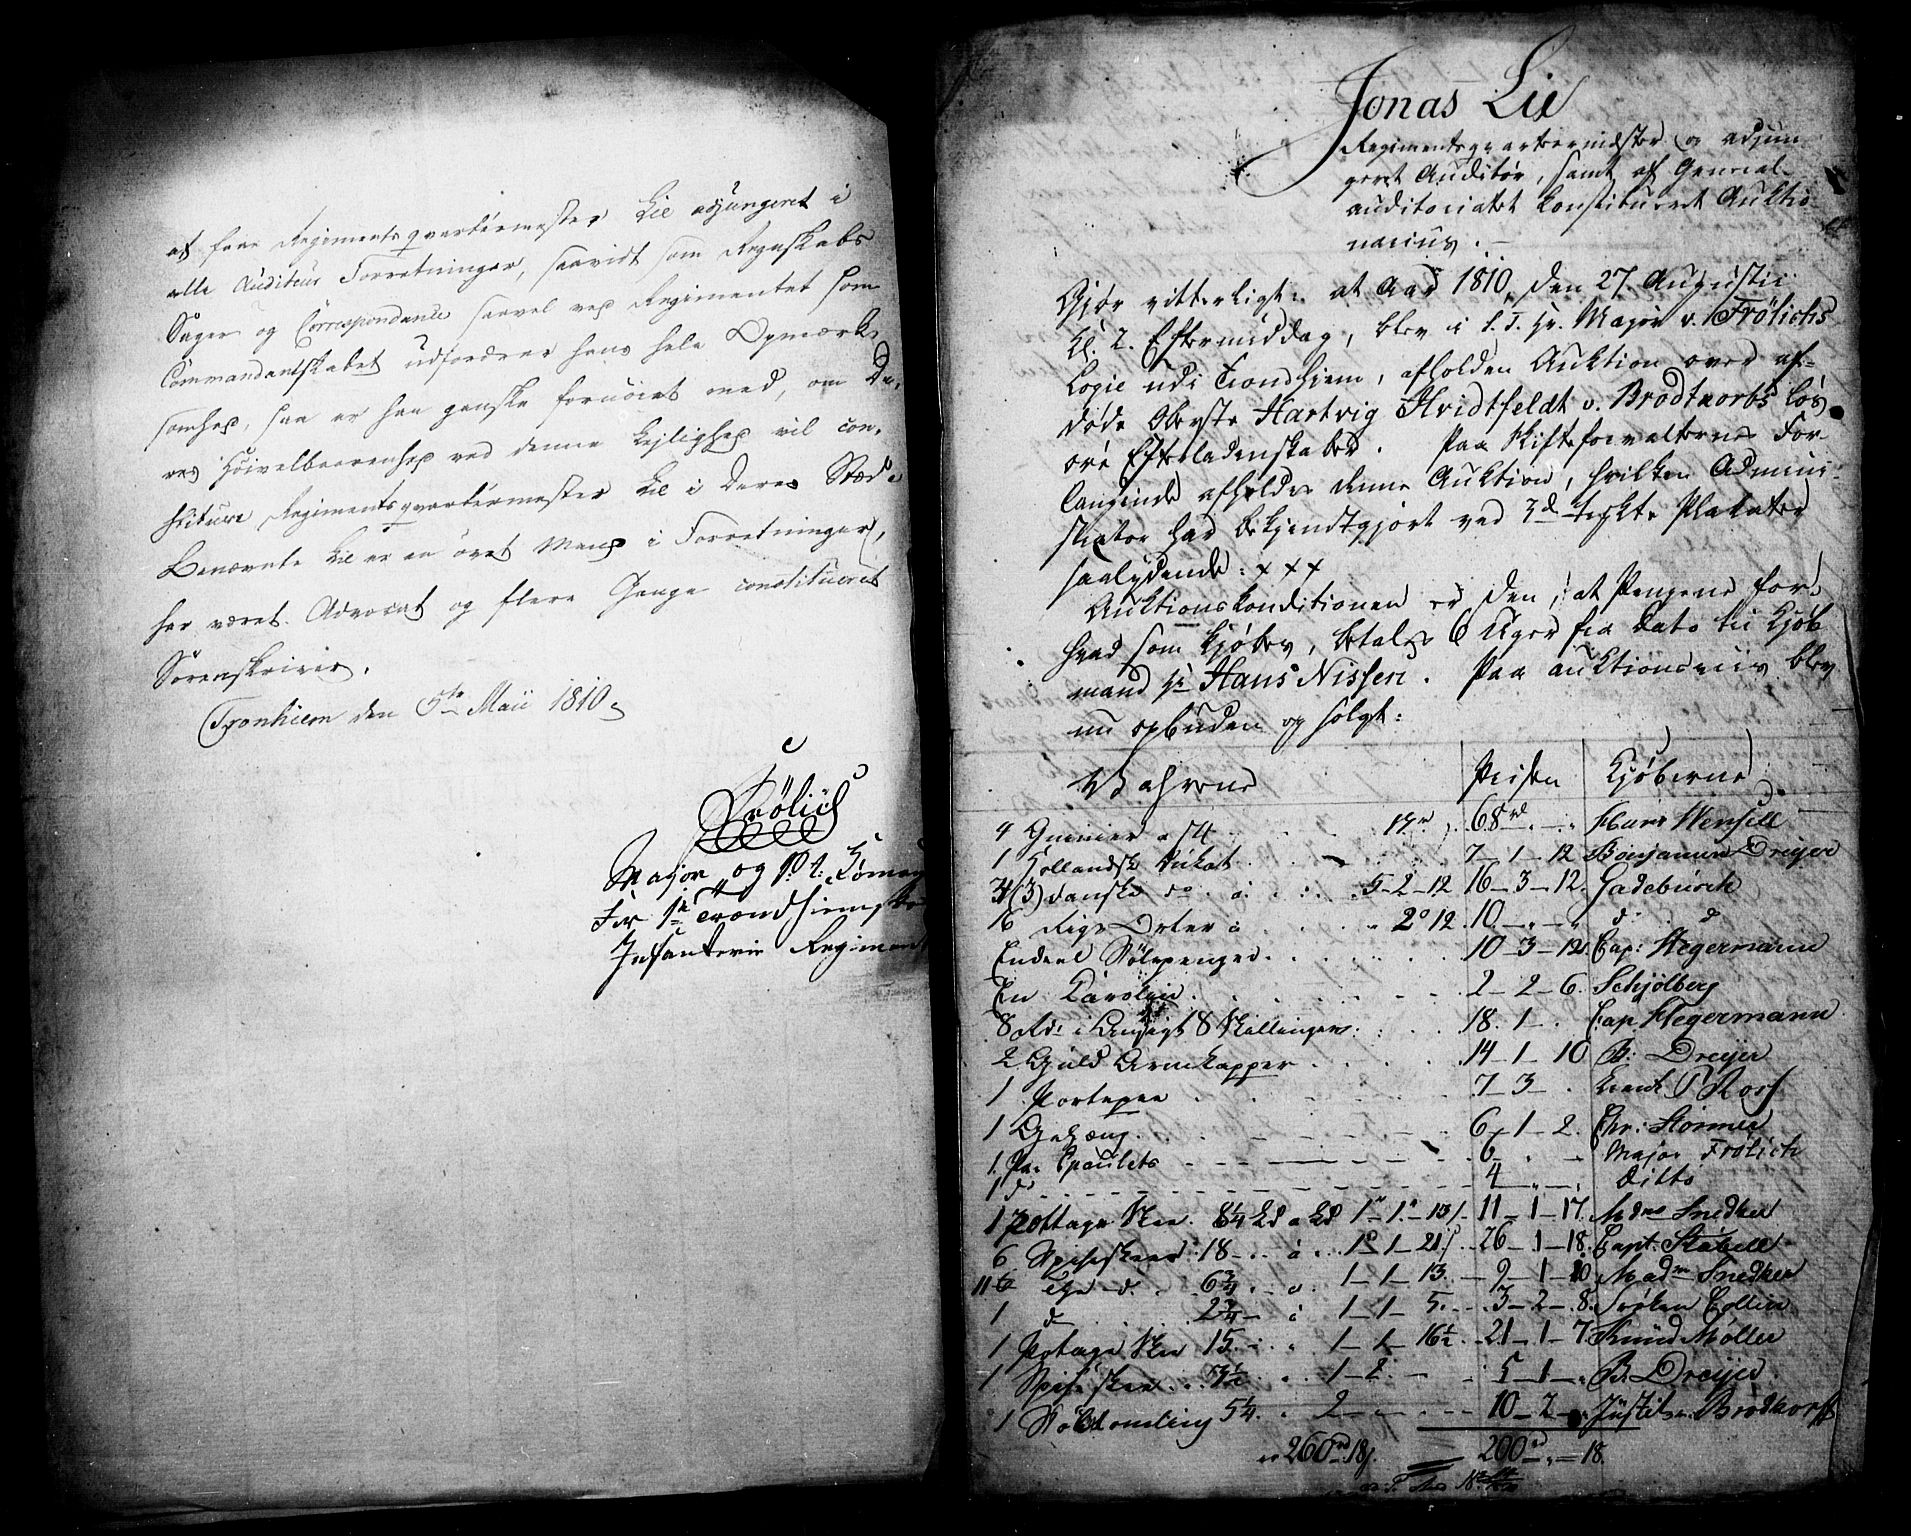 at faae Regimentsqvarteermester Lie adjungeret i
alle Auditeur Forretninger, saavidt som Regnskabs
Sager og Correspondance saavel ved Regimentet som
Commandantskabet udfordrer hans hele Opmærk-
somhed, saa er han ganske fornøiet med, om De-
res Høivelbaarenhed ved denne Lejlighed vil con-
stituere Regimentsqvarteermester Lie i Deres Sted
Benævnte Lie er en øvet Mand i Forretninger,
har været Advocat og flere Gange constitueret
Sorenskriver.
Tronhiem den 5te Maii 1810.
Frölich
Major og p: t: Comman
for 1te Trondhiemske
Infanterie Regiment
Jonas Lie
Regimentsqvarteermester og adjun-
geret Auditør, samt af General-
auditoriatet Konstitueret Auktio-
narius.
Gjør vitterligt: at Aar 1810, den 27. Augustii
Kl. 2. Eftermiddag, blev i S. T. Hr. Major v. Frölichs
Logie udi Trondhiem, afholden Auktion over af-
døde Oberste Hartvig Hvidtfeldt v. Brodtkorbs løs-
øre Efterladenskaber. Paa Skifteforvalterens For-
langende afholdes denne Auktion, hvilken Admini-
strator har bekjendtgjort ved 3de trykte Plakater
saalydende: x x x
Auktionskonditionen er den, at Pengene for
hvad som kjøbes, betales 6 Uger fra Dato til Kjøb-
mand Hr Hans Nissen. Paa auktionsviis blev
nu opbuden og solgt:
Vahrene Prisen Kjøberne
4 Guineer a 17 68 rd Hans Wensell
1 Hollandsk Dukat 7-1-12 Benjamin Dreyer
3 danske do a 5-2-12 16-3-12. Gadebusch
16 Rigs Orter a 2 o 12. 10 d d
Endeel Sølvpenge 10-3-12 Cap: Hegermann
En Carolin 2-2-6. Schjølberg
8 Rd: i 8 Skillinger 18. 1 Cap Hegermann
2 Guld 14-1-10 B: Dreyer
1 Portepee 7-3 P Rosf
1 Gehæng 6-1-2. Chr: Størmer
1. Par Epaulets 6 Major Frölich
1 do 4 Ditto
1 Pottage Skee 8¼ Ld a Ld 1-1-13 11-1-17. Madme Snedker
6 Spiseskeer 18 a 1-1-21 26-1-18. Capt. Stabell
6 Thee d. 6¾ a 1-1-13. 9-1-10 Madm Snedker
1 d 2¾ a 1-1-5 3-2-8. Frøken Collin
1 Potage Skee 15 1-1-16½ 21-1-7 Knud Møller
1 Spiseskee 3½ 1-2 5-1 B. Dreyer
1 5¼ 2 10-2 Justits. Brodkorb
260 rd 18 s. 260 rd 18